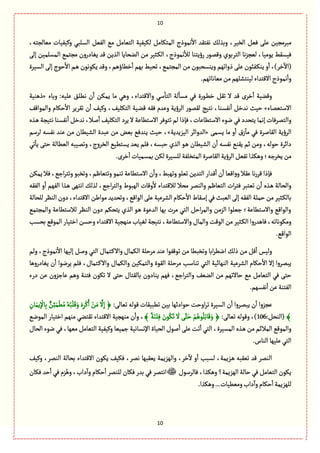 10
مبرمجين على فعل الخير، وبذلك نفتقد الأنموذج المتكامل لكيفية التعامل مع الفعل السلبي وكيفيات معالجته،
فيسقط يوميا، لعجزنا التربوي وقصور رؤيتنا للأنموذج، الكثير من الضحايا الذين قد يغادرون مجتمع المسلمين إلى
(الآخر)، أو ينكفئون على ذواتهم وينسحبون من المجتمع، تحيط بهم أخطاؤهم، وقد يكونون هم الأحوج إلى السيرة
وأنموذج الاقتداء لينتشلهم من معاناتهم.
وقضية أخرى قد لا تقل خطورة في مسألة التأسي والاقتداء، وهي ما يمكن أن نطلق عليه: وباء «ذهنية
الاستعصاء» حيث ندخل أنفسنا، نتيجة لقصور الرؤية وعدم فقه قضية التكليف، وكيف أن تقرير الأحكام والمواقف
والتصرفات إنما يتحدد في ضوء الاستطاعات، فإذا لم تتوفر الاستطاعة لا يرد التكليف أصلا، ندخل أنفسنا نتيجة هذه
الرؤية القاصرة في مآزق أو ما يسمى «الدوائر اليزيدية»، حيث يندفع بعض من عبدة الشيطان من عند نفسه لرسم
دائرة حوله، ومن ثم يقنع نفسه أن الشيطان هو الذي حبسه، فلم يعد يستطيع الخروج، وتصيبه العطالة حتى يأتي
من يخرجه؛ وهكذا تفعل الرؤية القاصرة المتخلفة للسيرة لكن بمسميات أخرى.
فإذا قررنا عقلا وواقعا أن أقدار التدين تعلو وتهبط، وأن الاستطاعة تنمو وتتعاظم، وتخبو وتتراجع، فلا يمكن
والحالة هذه أن تعتبر فترات التعاظم والنصر محلا للاقتداء لأوقات الهبوط والتراجع، لذلك انتهى هذا الفهم أو الفقه
بالكثير من حملة الفقه إلى العبث في إسقاط الأحكام الشرعية على الواقع، وتحديد مواطن الاقتداء، دون النظر للحالة
والواقع والاستطاعة؛ جعلوا الزمن والمراحل التي مرت بها الدعوة هو الذي يتحكم دون النظر للاستطاعة والمجتمع
ومكوناته، فاهدروا الكثير من الوقت والمال والاستطاعة، نتيجة لغياب منهجية الاقتداء وحسن اختيار الموقع بحسب
الواقع.
وليس أقل من ذلك اضطرابا وتخبطا من توقفوا عند مرحلة الكمال والاكتمال التي وصل إليها الأنموذج، ولم
يبصروا إلا الأحكام الشرعية النهائية التي تناسب مرحلة القوة والتمكين والكمال والاكتمال، فلم يرضوا أن يغادروها
حتى في التعامل مع حالاتهم من الضعف والتراجع، فهم ينادون بالقتال حتى لا تكون فتنة وهم عاجزون عن درء
الفتنة عن أنفسهم.
عجزوا أن يبصروا أن السيرة تراوحت حوادثها بين تطبيقات قوله تعالى: ﴿ إِلَّا مَنْ أُكْرِهَ وَقَلْبُهُ مُطْمَئِنٌّ بِالْإِيمَانِ
﴾ (النحل:106)، وقوله تعالى: ﴿ وَقَاتِلُوهُمْ حَتَّى لَا تَكُونَ فِتْنَةٌ ﴾ ، وأن منهجية الاقتداء تقتضي منهم اختيار الموضع
والموقع الملائم من هذه المسيرة، التي أتت على أصول الحياة الإنسانية جميعا وكيفية التعامل معها، في ضوء الحال
التي عليها الناس.
النصر قد تعقبه هزيمة، لسبب أو لآخر، والهزيمة يعقبها نصر، فكيف يكون الاقتداء بحالة النصر، وكيف
يكون التعامل في حالة الهزيمة؟ وهكذا، فالرسول ﷺ انتصر في بدر فكان للنصر أحكام وآداب، وهُزم في أحد فكان
للهزيمة أحكام وآداب ومعطيات... وهكذا.
10